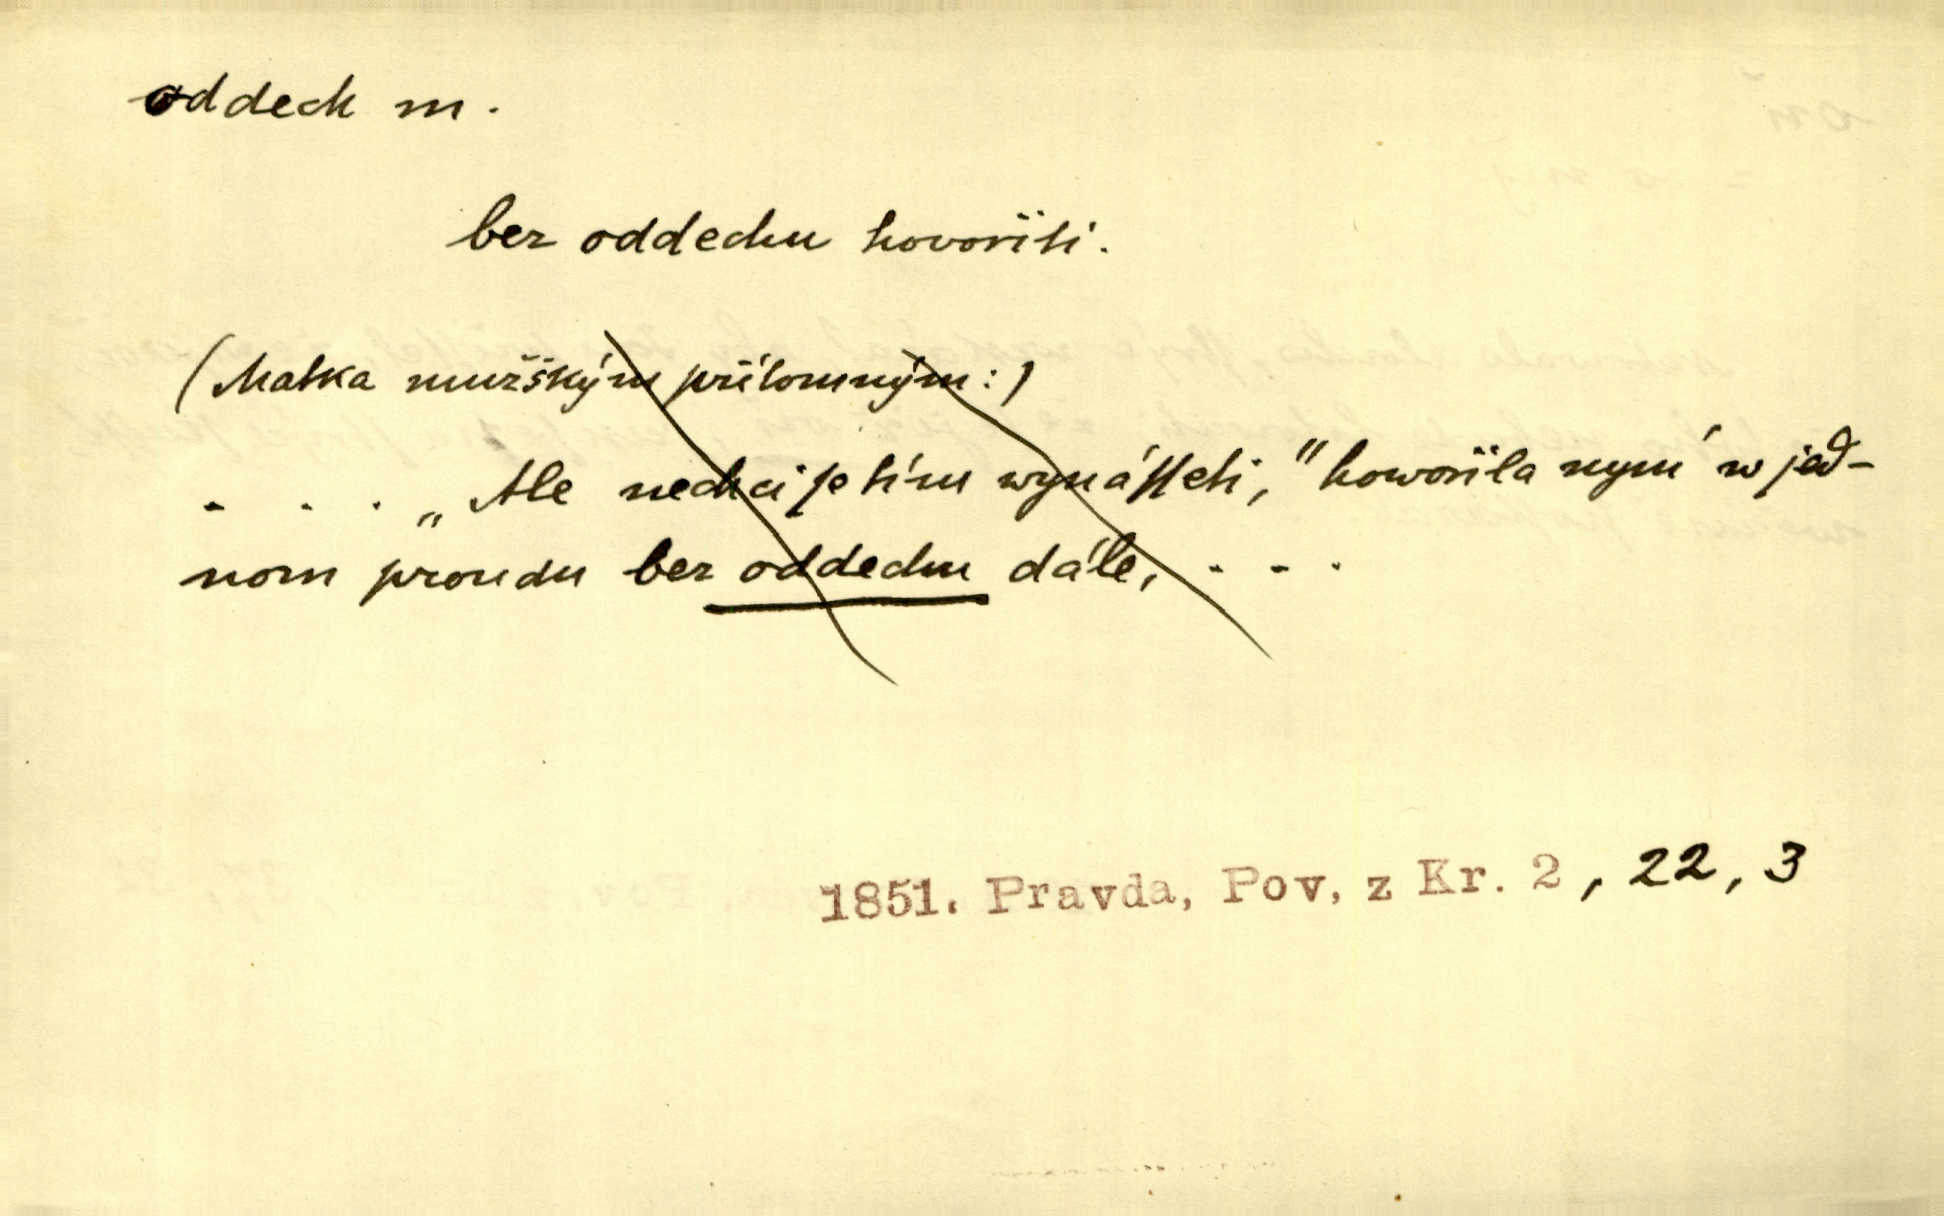 oddech m.
bez oddechu hovořiti.
(Matka mužským přítomným:)
. . . „Ale nechci se tím wynášseti," howořila nyní w jed-
nom proudu bez oddechu dále, . . .
1851. Pravda, Pov. z Kr. 2, 22, 3